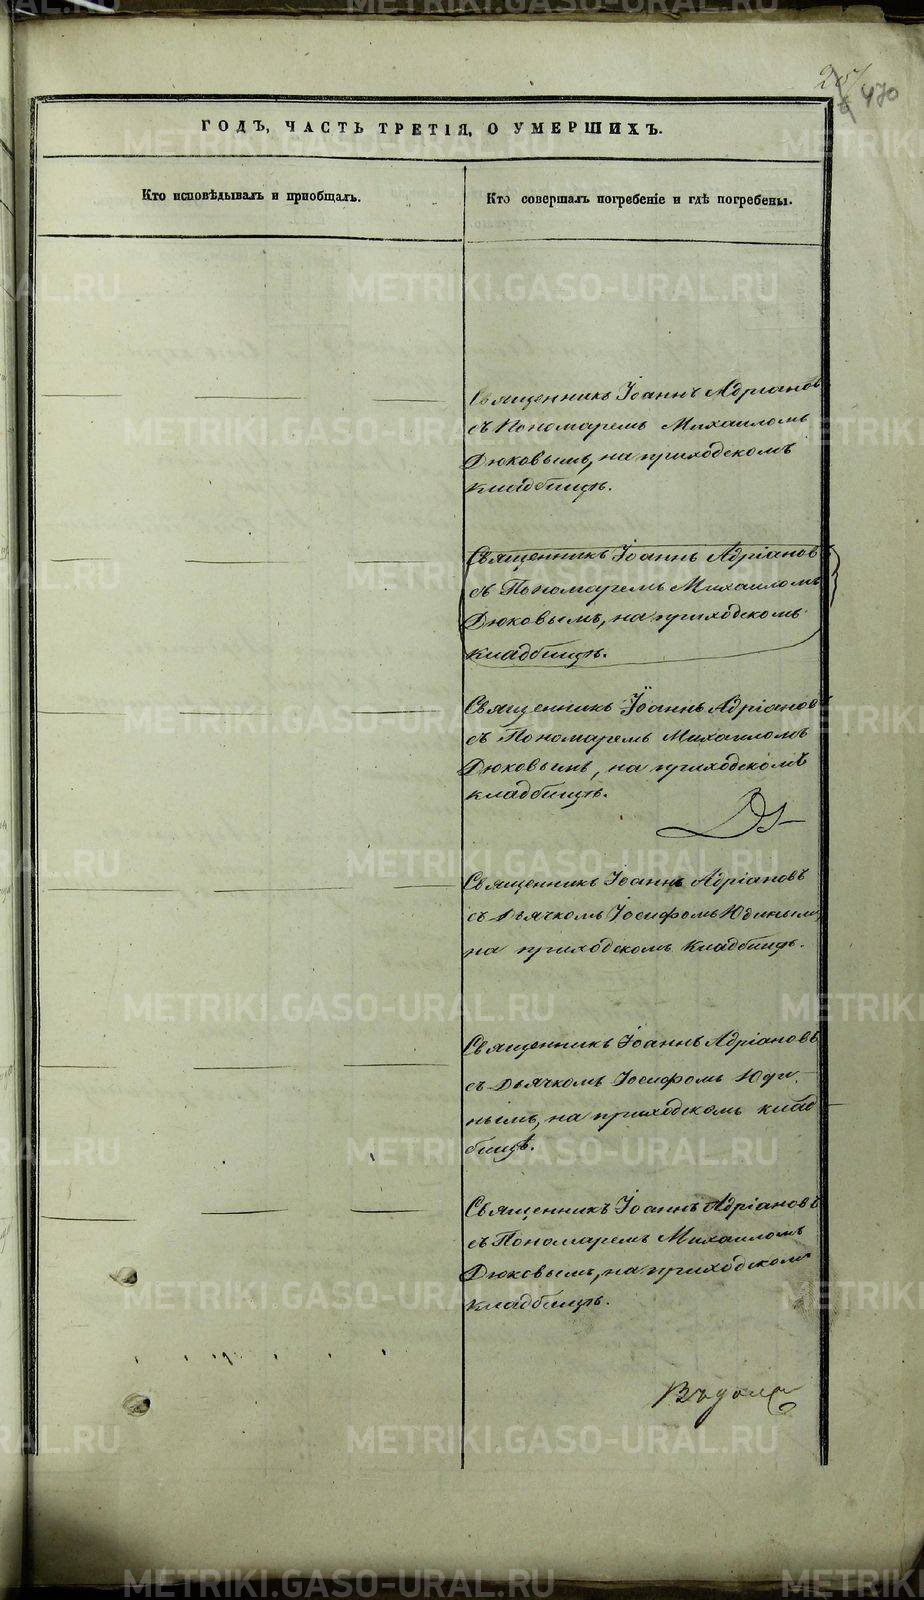 470
ГОДЪ, ЧАСТЬ ТРЕТІЯ, О УМЕРШИХЪ.
Кто исповѣдывалъ и пріобщалъ.
Кто совершалъ погребеніе и гдѣ погребены.
Священникъ Іоаннъ Адріановъ
съ Пономаремъ Михаиломъ
Дюковымъ, на приходскомъ
кладбищѣ.
Священникъ Іоаннъ Адріановъ
съ Пономаремъ Михаиломъ
Дюковымъ, на приходскомъ
кладбищѣ.
Священникъ Іоаннъ Адріановъ
съ Пономаремъ Михаиломъ
Дюковымъ, на приходскомъ
кладбищѣ.
Священникъ Іоаннъ Адріановъ
съ Дьячкомъ Іосифомъ Юдинымъ,
на приходскомъ кладбищѣ.
Священникъ Іоаннъ Адріановъ
съ Дьячкомъ Іосифомъ Юди-
нымъ, на приходскомъ клад
бищѣ.
Священникъ Іоаннъ Адріановъ
съ Пономаремъ Михаиломъ
Дюковымъ, на приходскомъ
кладбищѣ.
METRIKI.GASO-URAL.RU